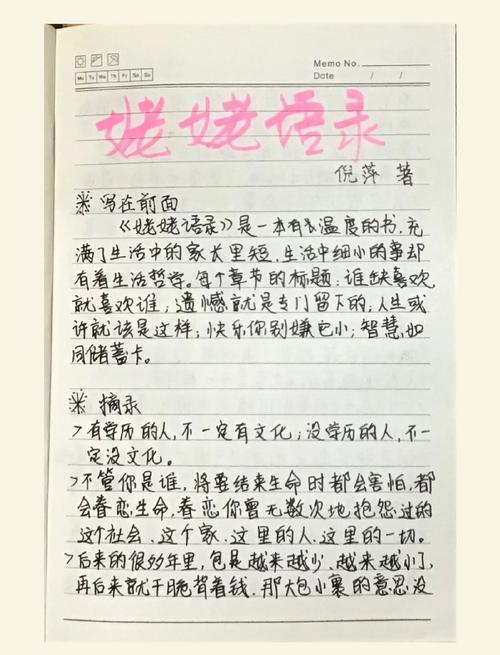 Memo No.
Mo Tu We Th Fr Sa Su
Date / /
姥姥语录
倪萍 著
※ 写在前面
《姥姥语录》是一本有温度的书，充
满了生活中的家长里短，生活中细小的事却
有着生活哲学。每个章节的标题：谁缺喜欢，
就喜欢谁；遗憾就是专门留下的；人生或
许就该是这样；快乐你别嫌它小；智慧，如
同储蓄卡。
※ 摘录
>有学历的人，不一定有文化；没学历的人，不一
定没文化。
>不管你是谁，将要结束生命时都会害怕，都
会眷恋生命，眷恋你曾无数次地抱怨过的
这个社会、这个家、这里的人、这里的一切。
>后来的很多年里，包是越来越少、越来越小了，
再后来就干脆背着钱，那大包小裹的意思没